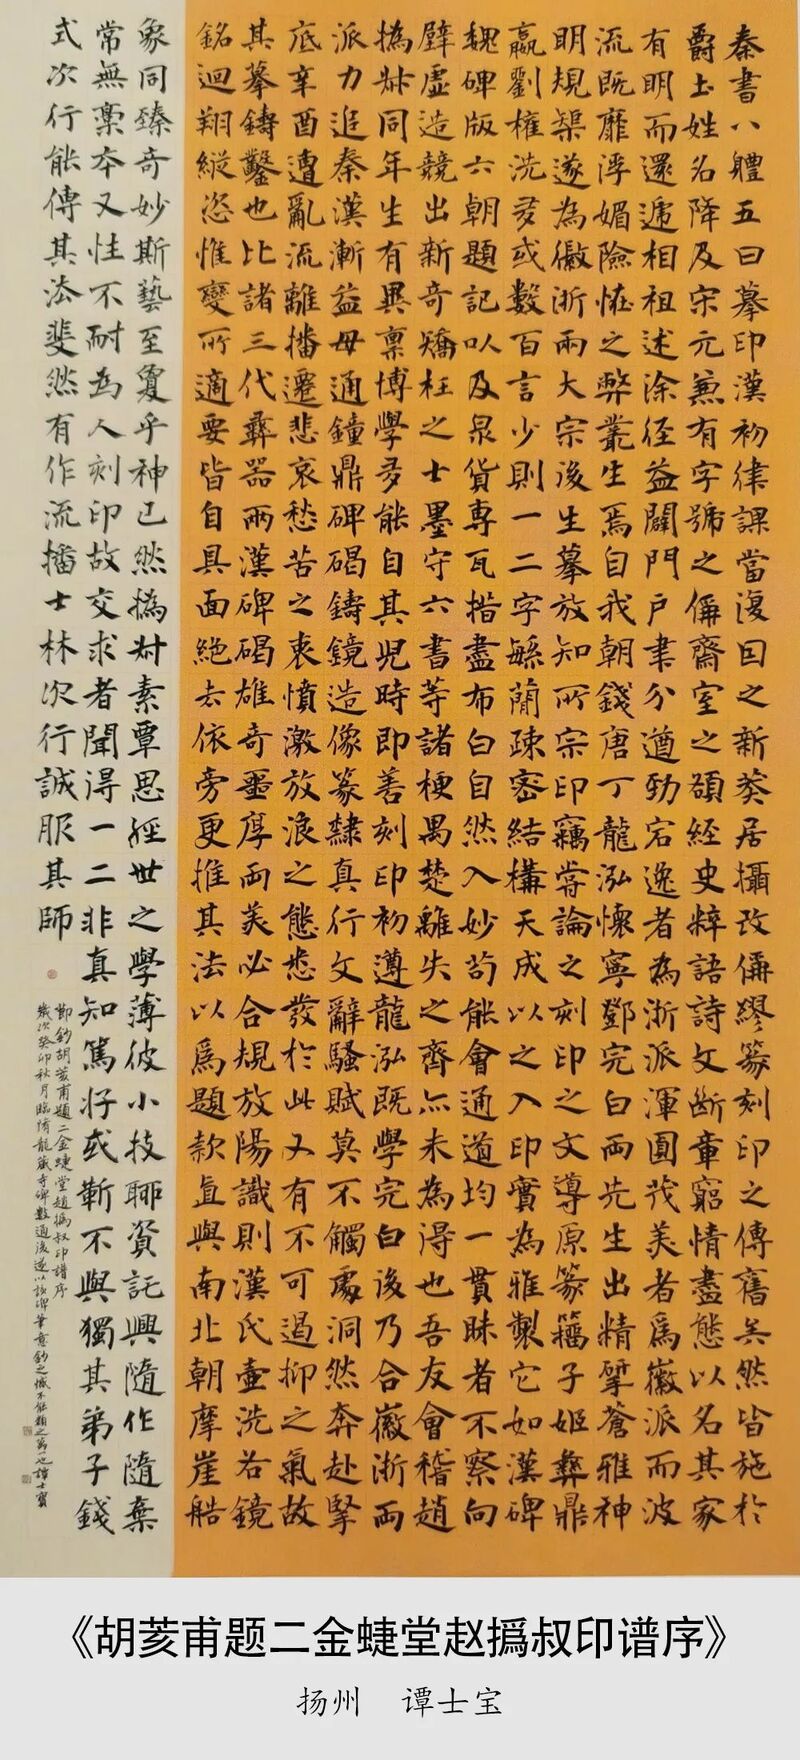 秦書八體五曰摹印漢初律課當復因之新莽居攝改偁繆篆刻印之傳舊矣然皆施於
爵土姓名降及宋元兼有字號之偁齋室之頟經史粹語詩文斷章窮情盡態以名其家
有明而還遞相祖述涂徑益闢門戶聿分遒勁宕逸者為浙派渾圓茂美者為徽派而波
流既靡浮媚險怪之弊叢生焉自我朝錢唐丁龍泓懷寧鄧完白兩先生出精擘蒼雅神
明規榘遂為徽浙兩大宗後生摹放知所宗印竊嘗論之刻印之文導原篆籀子姬彝鼎
嬴劉權洗多或數百言少則一二字緐蕳疎密結構天成以之入印實為雅製它如漢碑
魏碑版六朝題記以及泉貨專瓦揩盡布白自然入妙苟能會通道均一貫昧者不察向
壁虛造競出新奇矯枉之士墨守六書等諸梗禺楚離失之齊亦未為得也吾友會稽趙
撝叔同年生有異稟博學多能自其兒時即善刻印初遵龍泓既學完白後乃合徽浙兩
派力追秦漢漸益毋通鐘鼎碑碣鑄鏡造像篆隸真行文辭騷賦莫不觸處洞然奔赴掔
底辛酉遭亂流離播遷悲哀愁苦之衷憤激放浪之態悉發於此又有不可遏抑之氣故
其摹鑄鑿也比諸三代彝器兩漢碑碣雄奇噩厚兩美必合規放陽識則漢氏壺洗名鏡
銘迴翔縱恣惟變所適要皆自具面絕去依旁更推其法以爲題款直與南北朝摩崖船
象同臻奇妙斯藝至夐乎神已然撝叔素覃思經世之學薄彼小技聊資託興隨作隨棄
常無稾本又性不耐為人刻印故交求者聞得一二非真知篤好或靳不與獨其弟子錢
式次行能傳其法斐然有作流播士林次行誠服其師
節鈔胡荄甫題二金蜨堂趙撝叔印譜序
歲次癸卯秋月臨隋龍藏寺碑數通後遂以該碑筆意鈔之愧不能類之萬一也譚士寶
《胡荄甫题二金蜨堂赵撝叔印谱序》
扬州 谭士宝